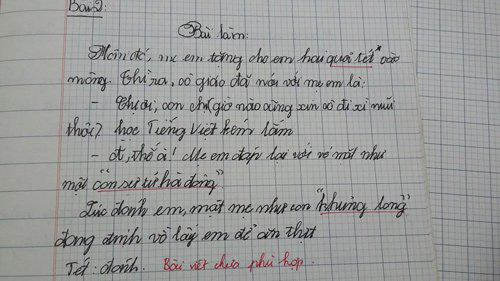 Bài 2:
Bài làm:
Hôm đó, mẹ em tặng cho em hai quả tét" vào
mông. Thì ra, cô giáo đã nói với mẹ em là:
- Chị ơi, con chị giờ nào cũng xin cô đi xì mũi
thôi? học Tiếng Việt kém lắm
- Ờ, thế à! Mẹ em đáp lại với vẻ mặt như
một "con sư tử hà đông"
Lúc đánh em, mặt mẹ như con "khủng long"
đang định vồ lấy em để ăn thịt
Tét: đánh. Bài viết chưa phù hợp.